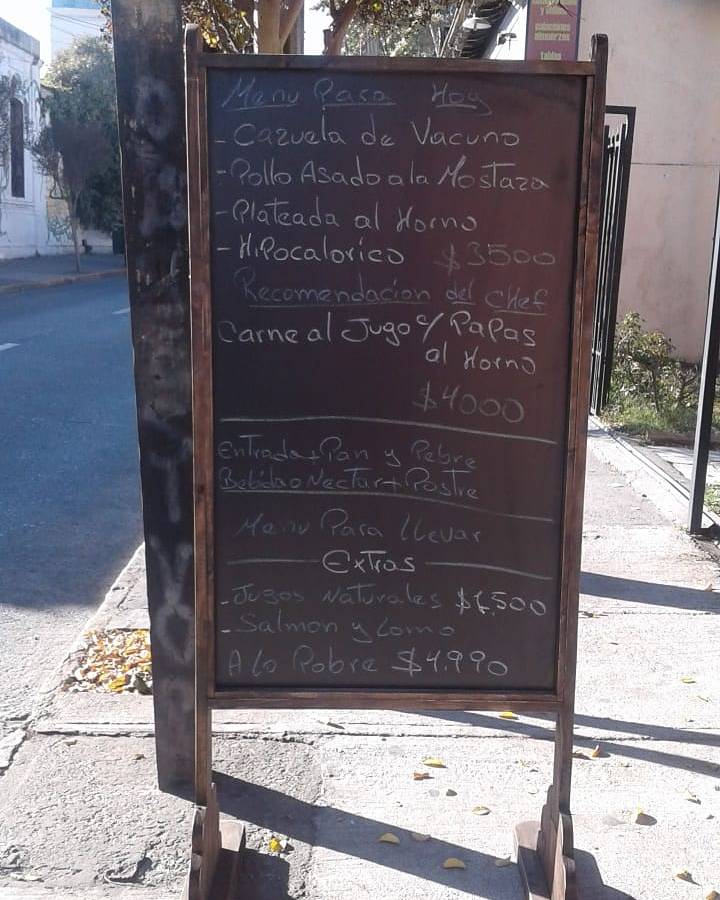 y onces
colaciones
almuerzos
tablas
Menu Para Hoy
- Cazuela de Vacuno
- Pollo Asado a la Mostaza
- Plateada al Horno
- Hipocalorico $3500
Recomendacion del Chef
Carne al Jugo c/ Papas
al Horno
$4000
Entrada+Pan y Pebre
Bebida o Nectar+Postre
Menu Para llevar
Extras
- Jugos Naturales $1.500
- Salmon y Lomo
A lo Pobre $4.990